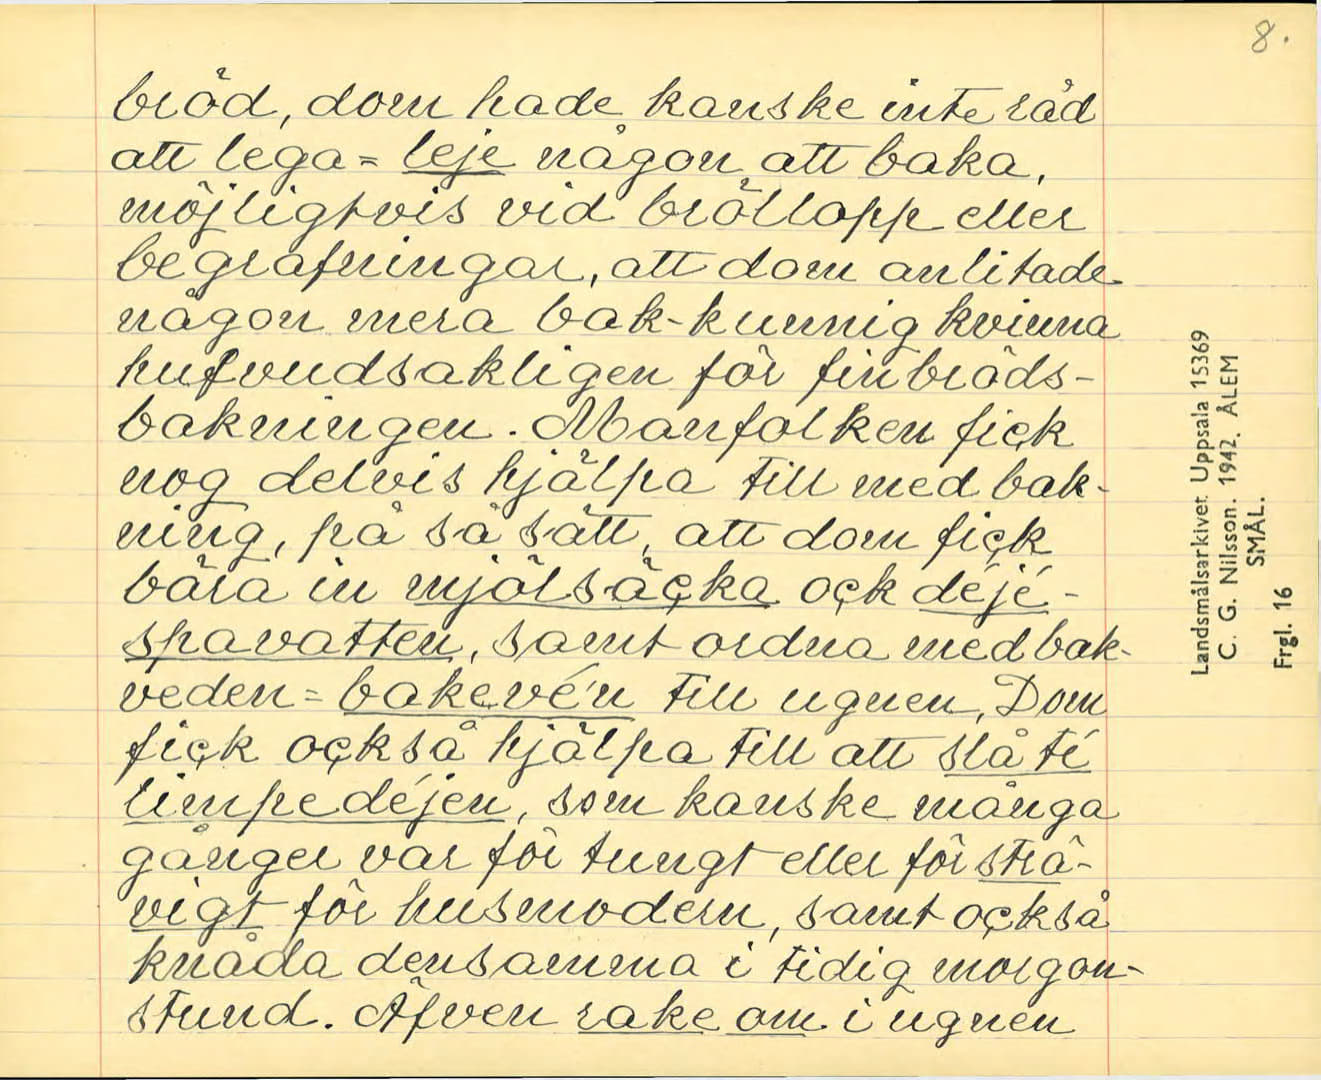 8.
bröd, dom hade kanske inte råd
att lega = leje någon att baka,
möjligtvis vid bröllopp eller
begrafningar, att dom anlitade
någon mera bak-kunnig kvinna
hufvudsakligen för finbröds-
bakningen. Manfolken fick
nog delvis hjälpa till med bak-
ning, på så sätt, att dom fick
bära in mjölsäcka ock déjé-
spavatten, samt ordna med bak-
veden = bakevé'n till ugnen, Dom
fick också hjälpa till att slå té
limpedéjen, som kanske många
gånger var för tungt eller för strä-
vigt för husmodern, samt också
knåda densamma i tidig morgon-
stund. Äfven rake om i ugnen
Landsmålsarkivet Uppsala 15369
C. G. Nilsson. 1942. ÅLEM
SMÅL.
Frgl. 16